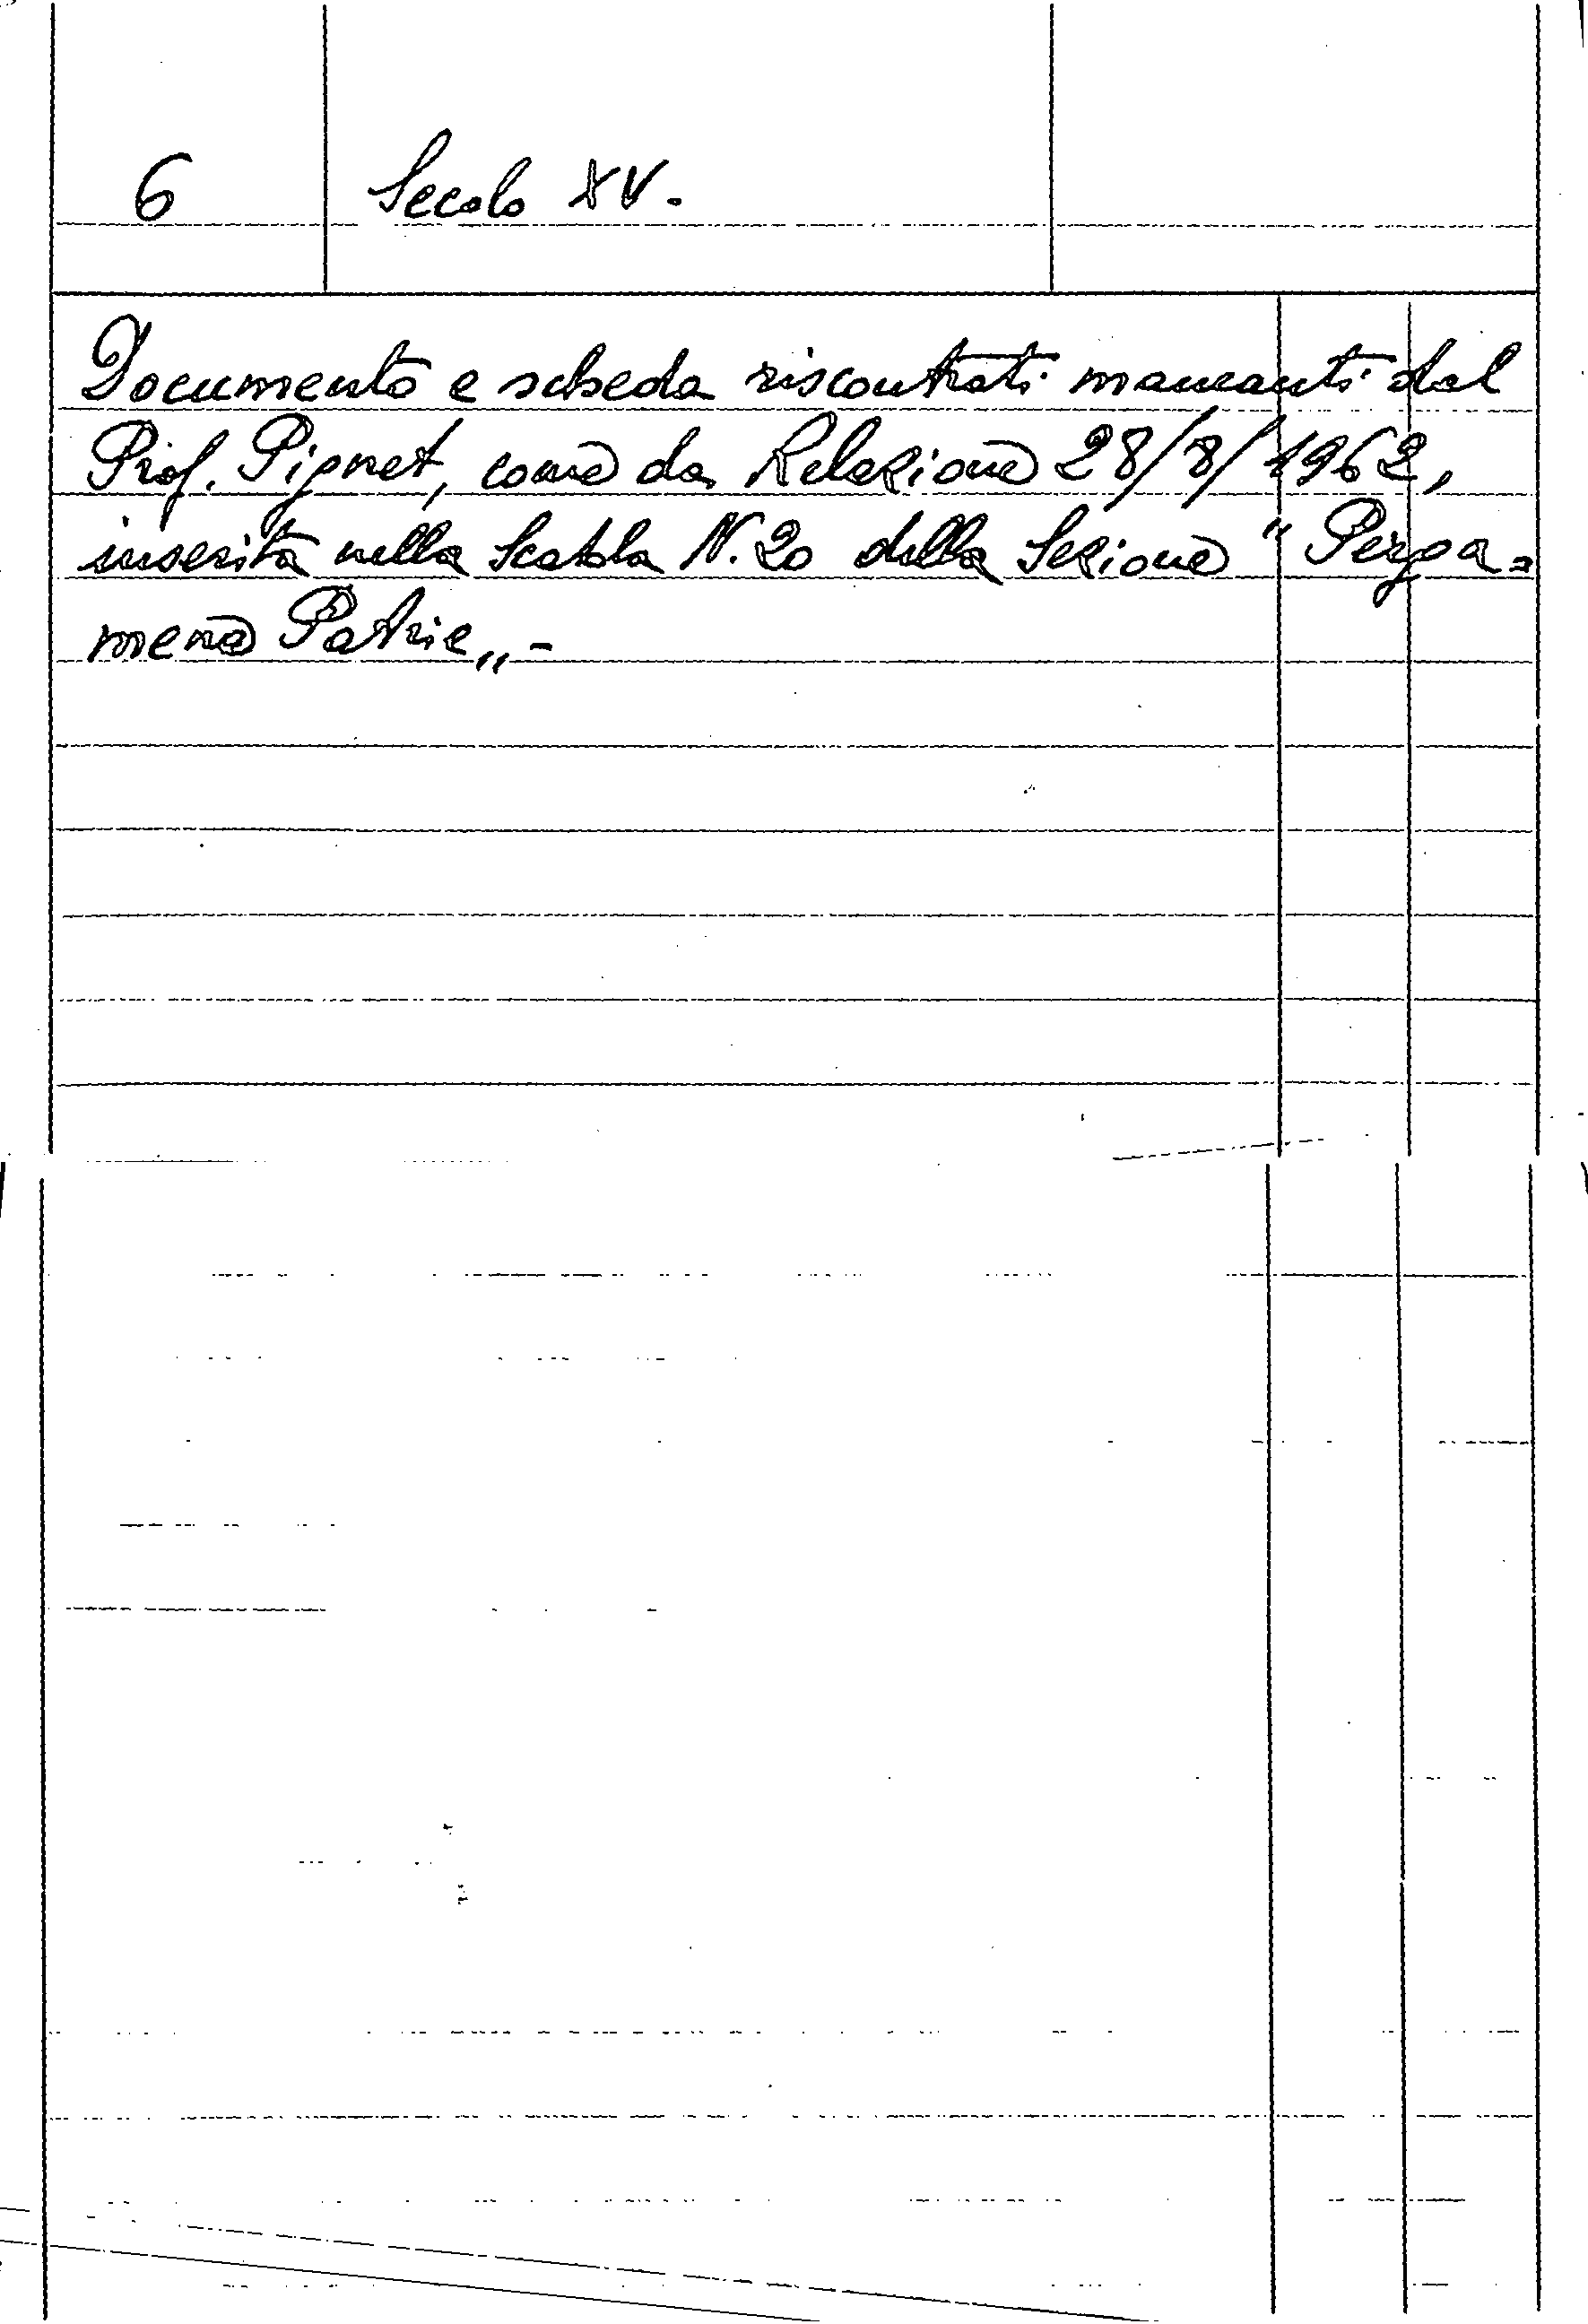 6 Secolo XV.
Documento e scheda riscontrati mancanti dal
Prof. Pignet, come da Relazione 28/8/1962,
inserita nella Scatola N. 20 della Sezione "Perga=
mene Patrie„ -